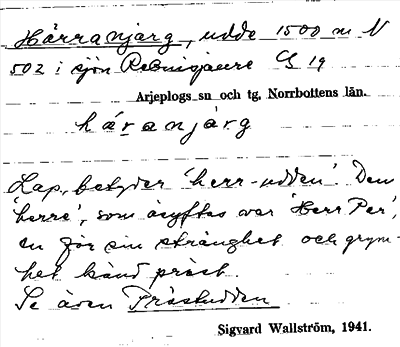 Härranjarg, udde 1500 m N
502 i sjön Rebnisjaure CS 19
Arjeplogs sn och tg, Norrbottens län.
háranjárg
Lap., betyder 'herr-udden'. Den
'herre', som åsyftas var 'Herr Per',
en för sin stränghet och grym-
het känd präst.
Se även Prästudden
Sigvard Wallström, 1941.